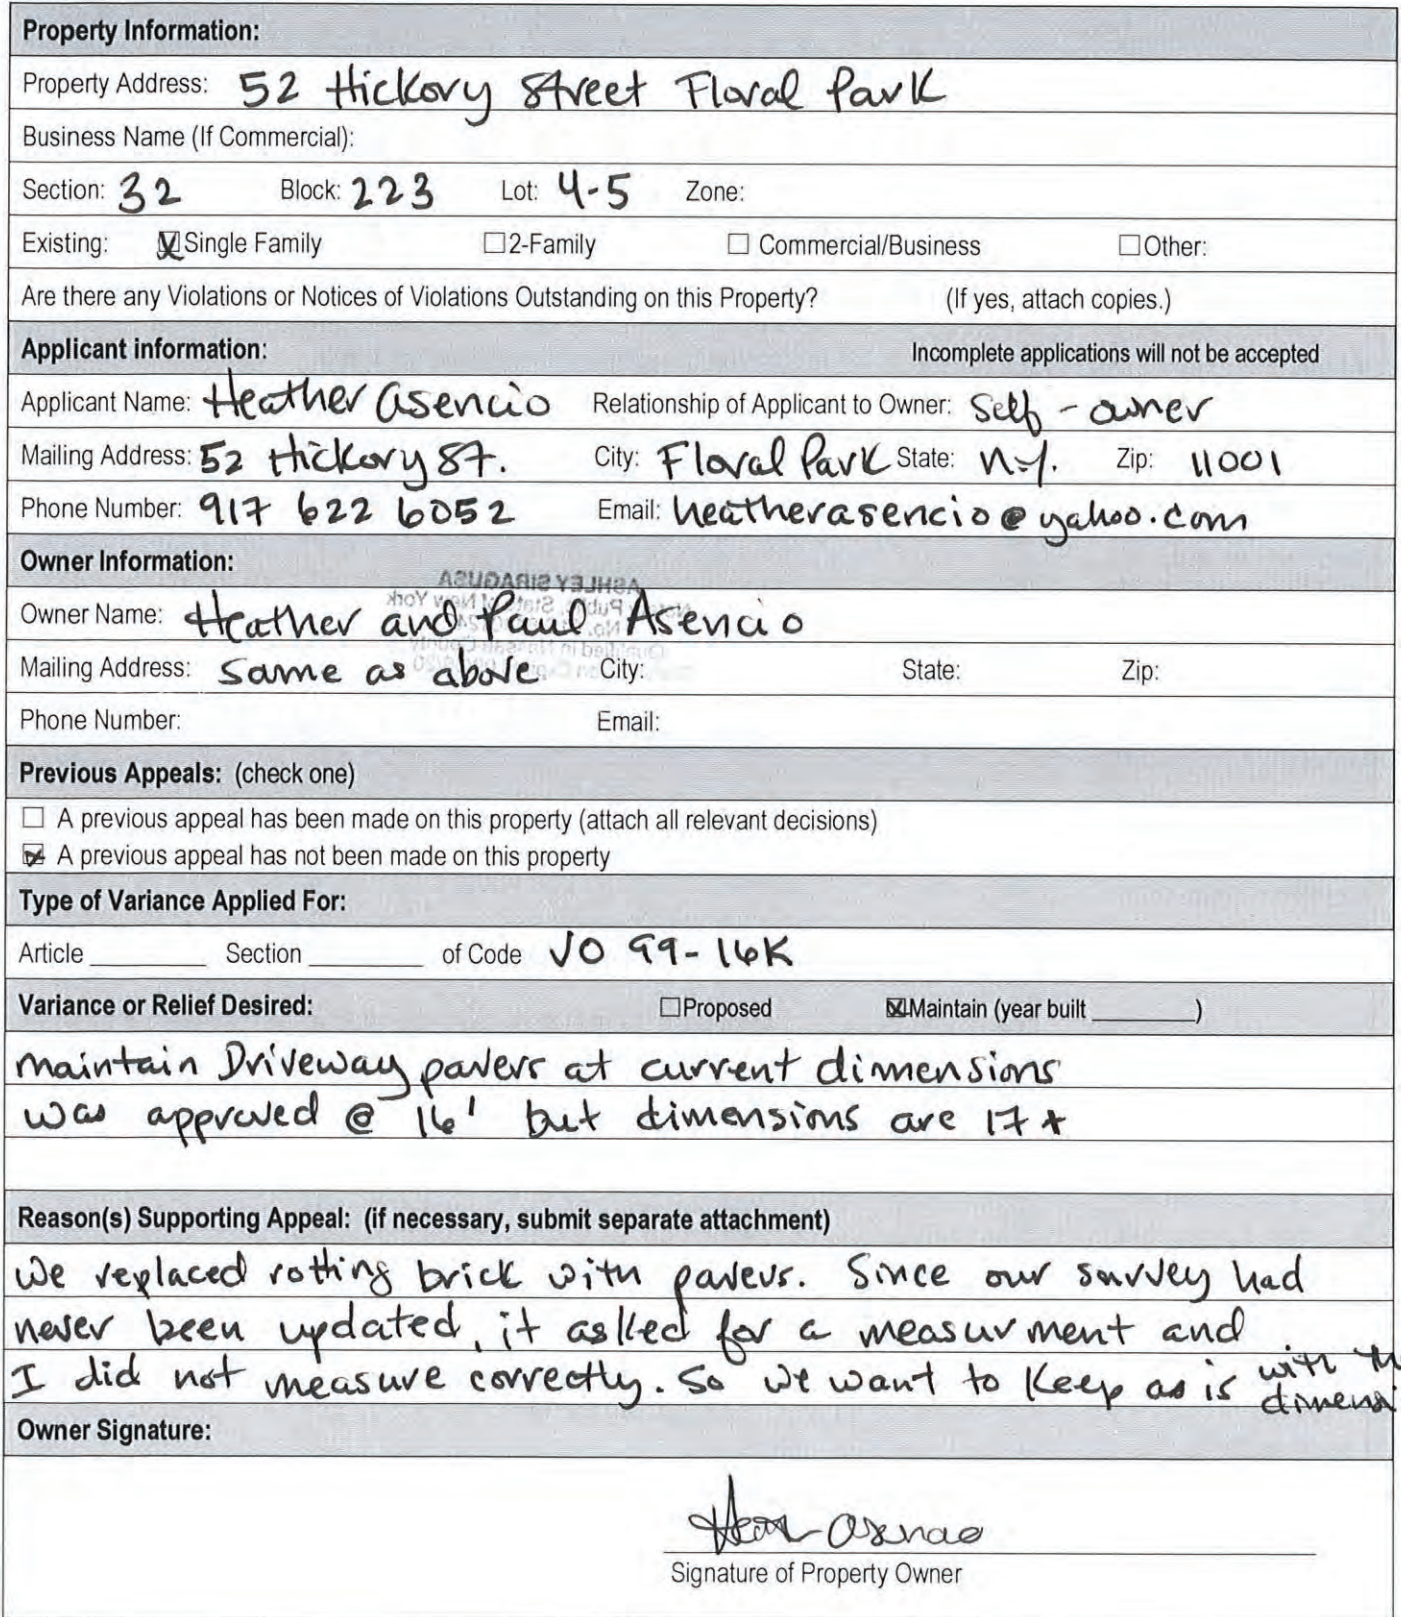 Property Information:
Property Address: 52 Hickory Street Floral Park
Business Name (If Commercial):
Section: 32 Block: 223 Lot: 4-5 Zone:
Existing: ☒Single Family ☐2-Family ☐ Commercial/Business ☐Other:
Are there any Violations or Notices of Violations Outstanding on this Property? (If yes, attach copies.)
Applicant information: Incomplete applications will not be accepted
Applicant Name: Heather Asencio Relationship of Applicant to Owner: Self - owner
Mailing Address: 52 Hickory St. City: Floral Park State: N.Y. Zip: 11001
Phone Number: 917 622 6052 Email: heatherasencio@yahoo.com
Owner Information:
ASHLEY SIRAGUSA
Owner Name: Heather and Paul Asencio
Mailing Address: Same as above City: State: Zip:
Phone Number: Email:
Previous Appeals: (check one)
☐ A previous appeal has been made on this property (attach all relevant decisions)
☒ A previous appeal has not been made on this property
Type of Variance Applied For:
Article ________ Section ________ of Code VO 99-16K
Variance or Relief Desired: ☐Proposed ☒Maintain (year built ________)
maintain Driveway pavers at current dimmensions
was approved @ 16' but dimensions are 17+
Reason(s) Supporting Appeal: (if necessary, submit separate attachment)
We replaced rotting brick with pavers. Since our survey had
never been updated, it asked for a measurment and
I did not measure correctly. So we want to keep as is with
Owner Signature:
Signature of Property Owner